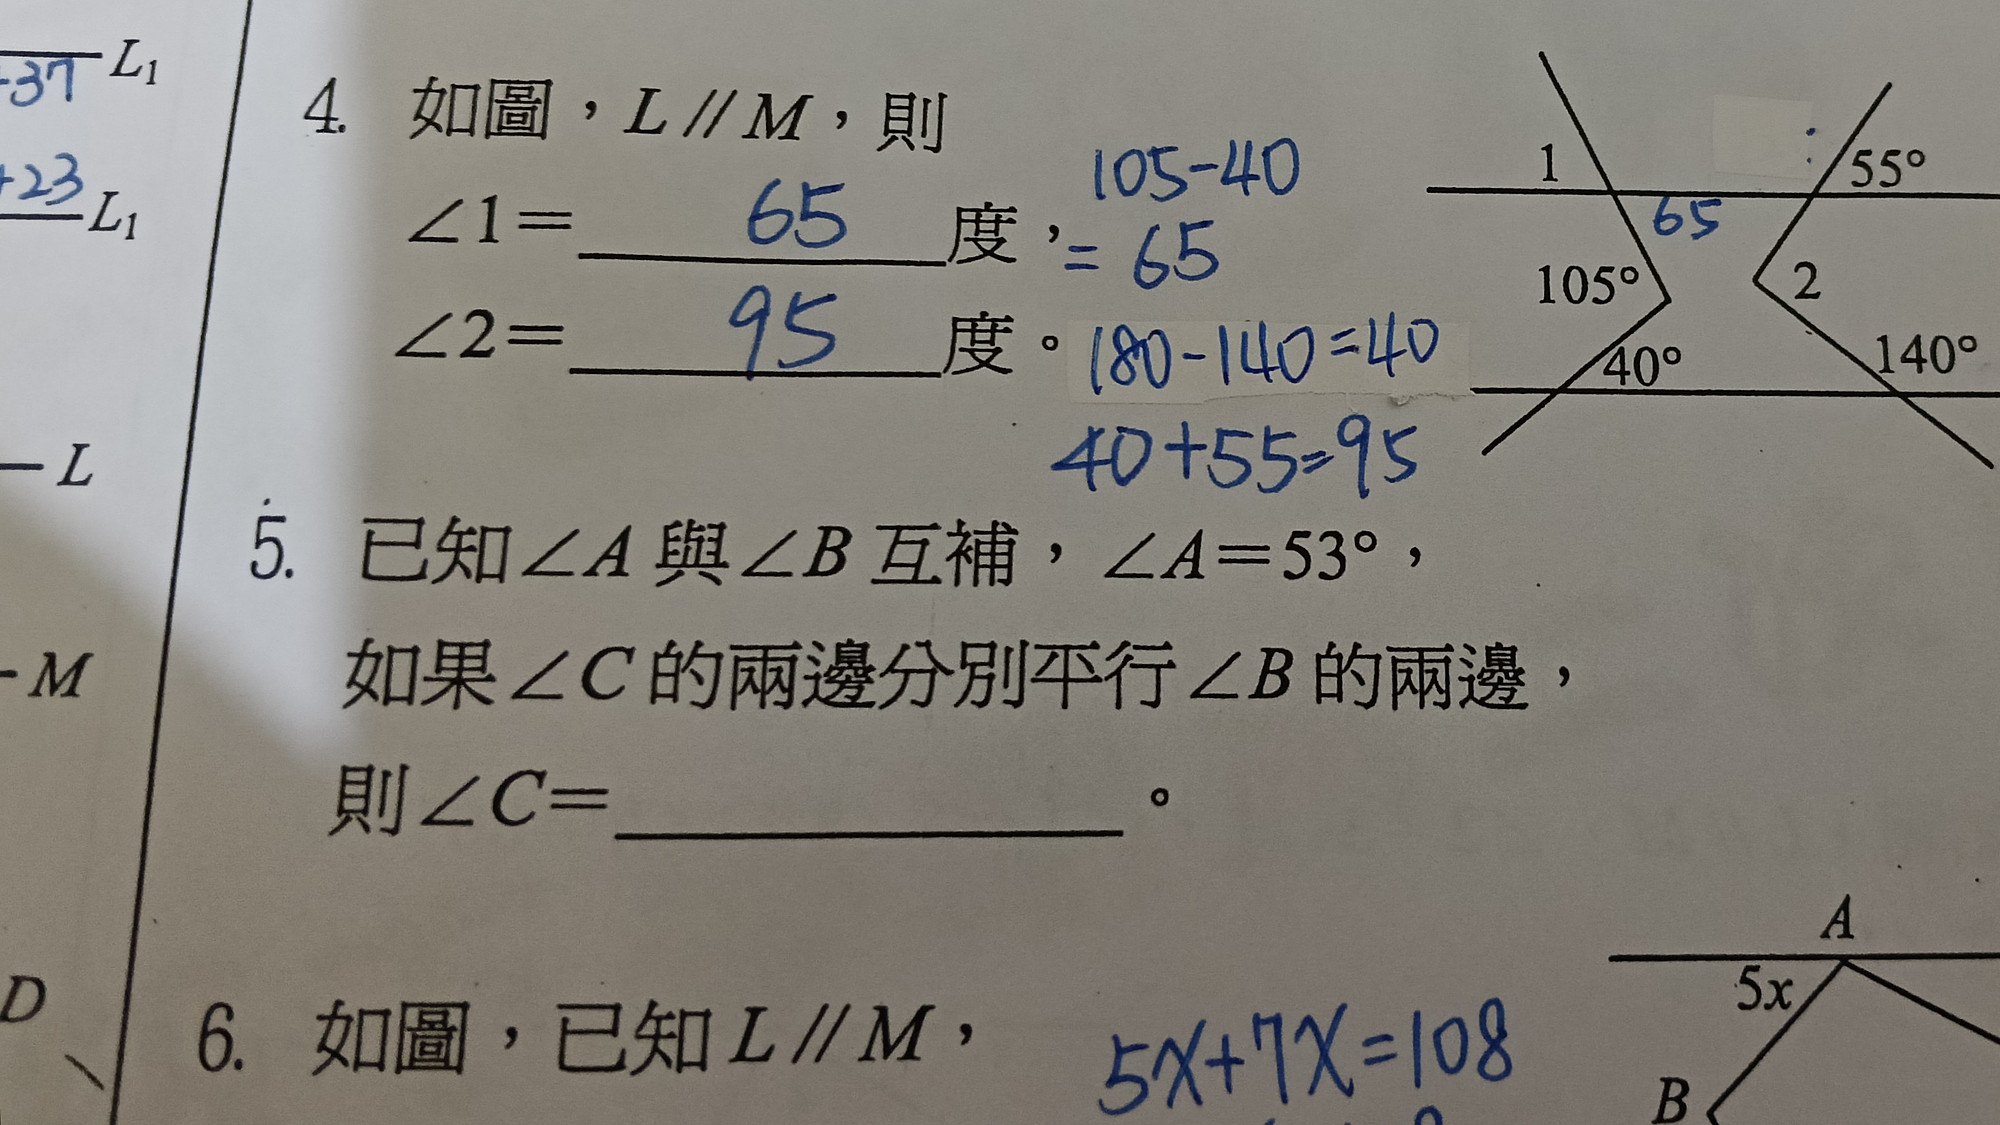 L₁
+37
+23
L₁
L
M
D
4. 如圖，L∥M，則
∠1＝65度，
∠2＝95度。
105-40
=65
180-140=40
40+55=95
1
55°
65
105°
2
40°
140°
5. 已知∠A與∠B互補，∠A＝53°，
如果∠C的兩邊分別平行∠B的兩邊，
則∠C＝______。
6. 如圖，已知L∥M，
5x+7x=108
A
5x
B